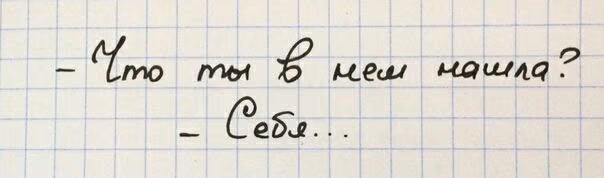 - Что ты в нем нашла?
- Себя...